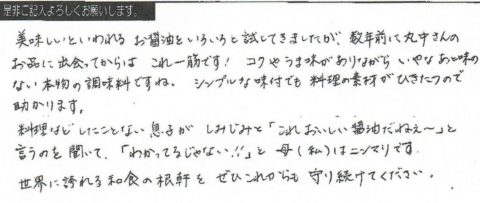 是非ご記入よろしくお願いします。
美味しいといわれる お醤油をいろいろと試してきましたが、数年前に丸中さんの
お品に出会ってからは これ一筋です! コクやうま味がありながら いやなあと味の
ない本物の調味料ですね。 シンプルな味付でも料理の素材がひきたつので
助かります。
料理などしたことない息子が しみじみと「これおいしい醤油だねぇ〜」と
言うのを聞いて、「わかってるじゃない!!」と 母(私)はニンマリです
世界に誇れる和食の根幹を ぜひこれからも 守り続けてください。